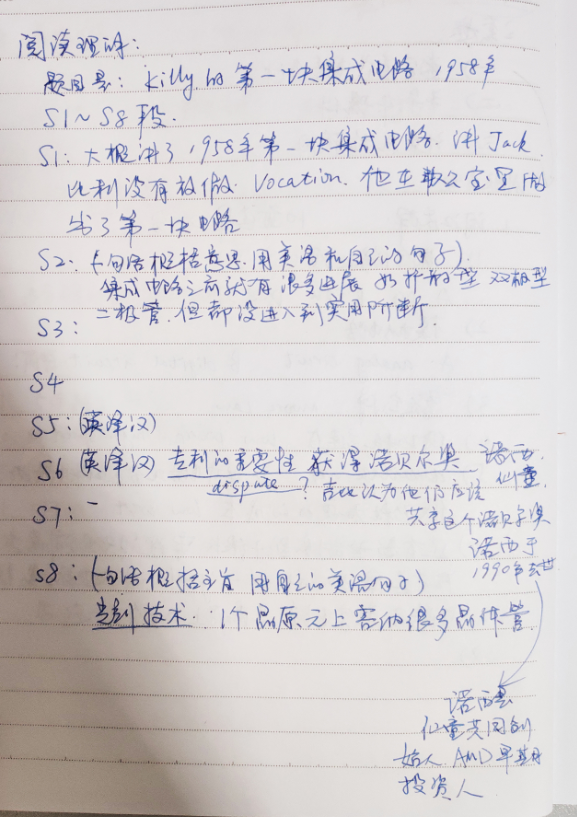 阅读理解:
题目是: killy. 的第一块集成电路 1958年
S1~S8段.
S1: 大概讲了1958年第一块集成电路. 讲Jack
比利没有放假 Vocation. 他在办公室里做
出了第一块电路
S2: (一句话概括意思 用英语和自己的句子).
集成电路之前就有很多进展 如扩散型 双极型
二极管. 但都没进入到实用阶段.
S3:
S4
S5: (英译汉)
S6 (英译汉) 专利的重要性 获得诺贝尔奖 诺西.
dispute ? 吉比认为他们应该 仙童.
S7: 一 共享这个诺贝尔奖
诺西于
1990年去世
S8: (一句话概括主旨 用自己的英语句子)
光刻技术. 1个晶原元上容纳很多晶体管.
诺西是
仙童共同创
始人 AMD早期
投资人